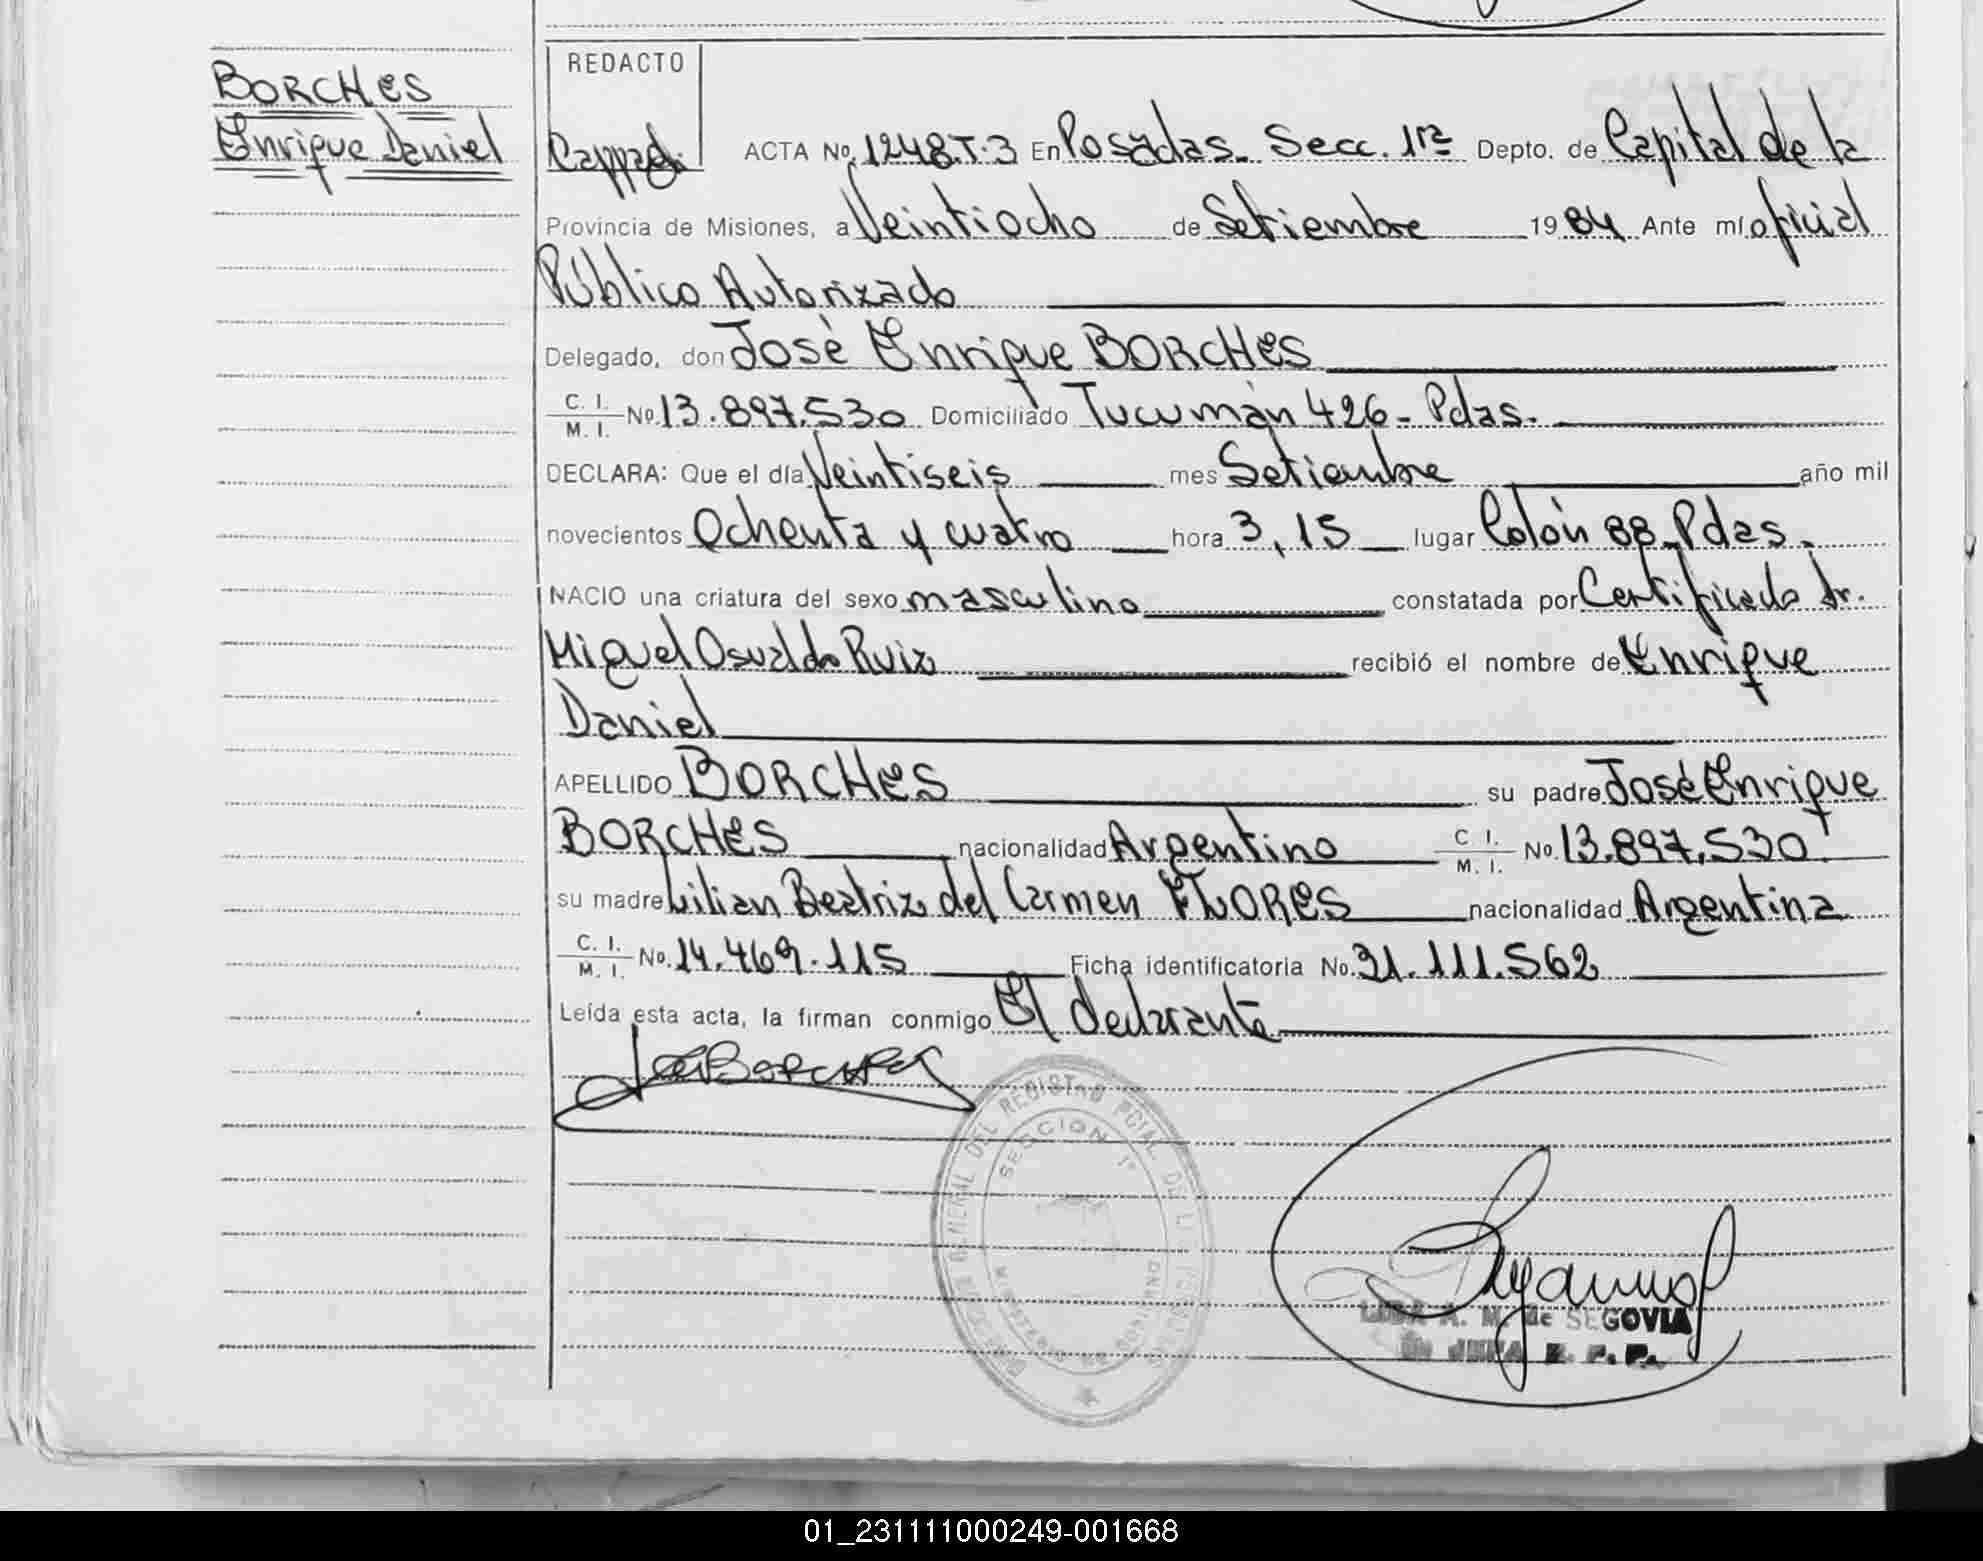 BORCHES
Enrique Daniel
REDACTO
ACTA No. 1248.T.3 En Posadas. Secc. 1ra Depto. de Capital de la
Provincia de Misiones, a Veintiocho de Setiembre 1984 Ante mí oficial
Público Autorizado
Delegado, don José Enrique BORCHES
C. I.
M. I. No. 13.897.530 Domiciliado Tucumán 426 - Pdas.
DECLARA: Que el día Veintiseis mes Setiembre año mil
novecientos Ochenta y cuatro hora 3,15 lugar Colón 88 - Pdas.
NACIO una criatura del sexo masculino constatada por Certificado dr.
Miguel Osvaldo Ruiz recibió el nombre de Enrique
Daniel
APELLIDO BORCHES su padre José Enrique
BORCHES nacionalidad Argentino C. I. M. I. No. 13.897.530
su madre Lilian Beatriz del Carmen FLORES nacionalidad Argentina
C. I.
M. I. No. 14.469.115 Ficha identificatoria No. 31.111.562
Leída esta acta, la firman conmigo El declarante
BORCHES
REGISTRO PCIAL. DE L
SECCION 1ª
A. M. de SEGOVIA
01_231111000249-001668